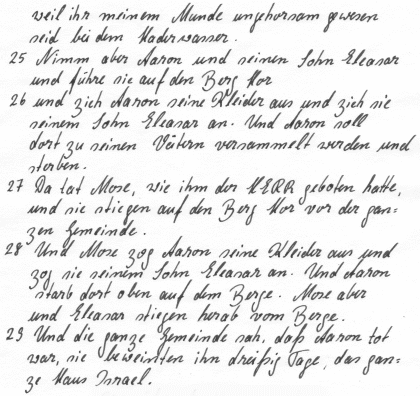 weil ihr meinem Munde ungehorsam gewesen
seid bei dem Haderwasser.
25 Nimm aber Aaron und seinen Sohn Eleasar
und führe sie auf den Berg Hor
26 und zieh Aaron seine Kleider aus und zieh sie
seinem Sohn Eleasar an. Und Aaron soll
dort zu seinen Vätern versammelt werden und
sterben.
27 Da tat Mose, wie ihm der HERR geboten hatte,
und sie stiegen auf den Berg Hor vor der gan-
zen Gemeinde.
28 Und Mose zog Aaron seine Kleider aus und
zog sie seinem Sohn Eleasar an. Und Aaron
starb dort oben auf dem Berge. Mose aber
und Eleasar stiegen herab vom Berge.
29 Und die ganze Gemeinde sah, daß Aaron tot
war, sie beweinten ihn dreißig Tage, das gan-
ze Haus Israel.